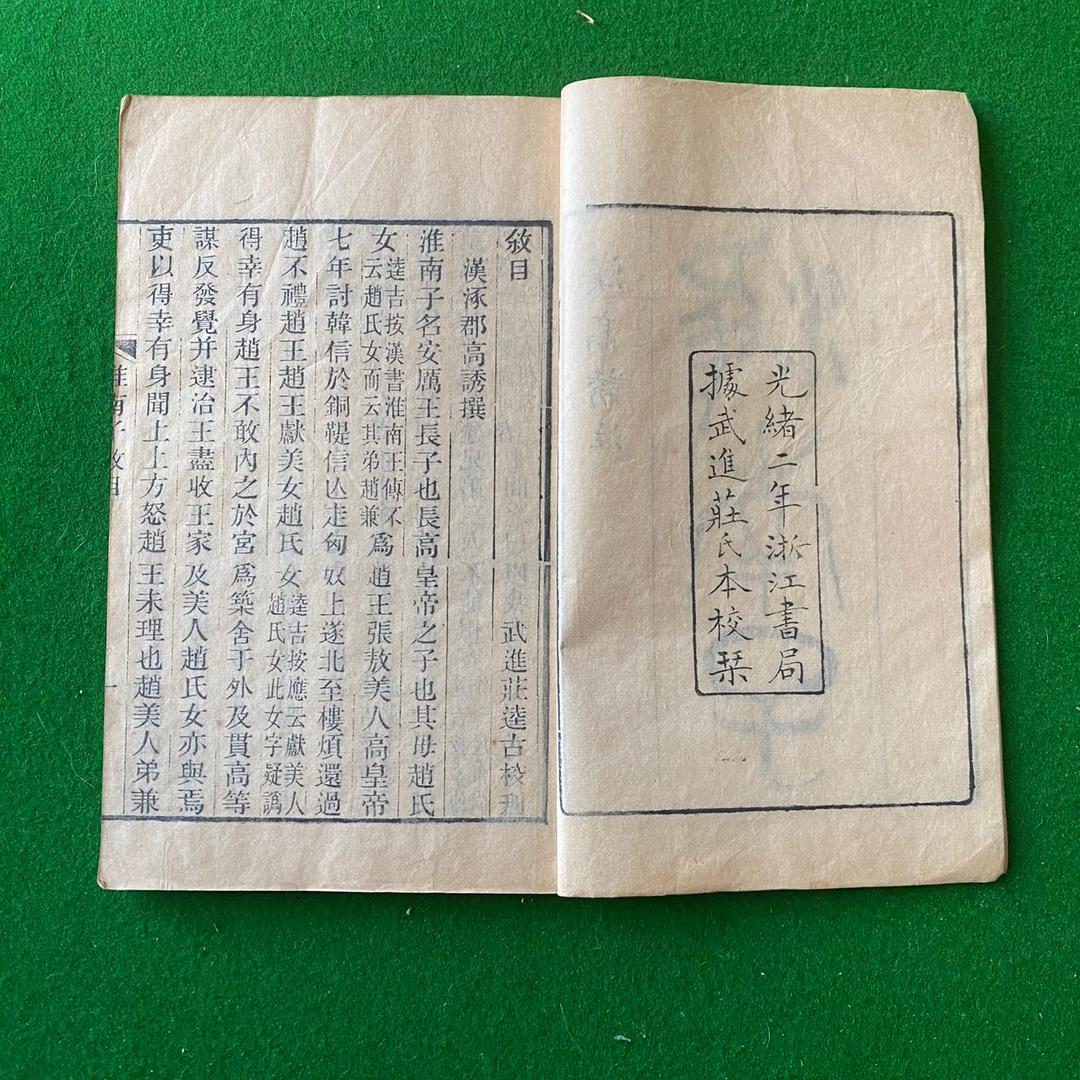 光緒二年浙江書局
據武進莊氏本校栞
敘目 武進莊逵吉校刊
漢涿郡高誘撰
淮南子名安厲王長子也長高皇帝之子也其毋趙氏
女逵吉按漢書淮南王傳不云趙氏女而云其弟趙兼爲趙王張敖美人高皇帝
七年討韓信於銅鞮信亾走匈奴上遂北至樓煩還過
趙不禮趙王趙王獻美女趙氏女逵吉按應云獻美人趙氏女此女字疑譌
得幸有身趙王不敢內之於宮爲築舍于外及貫高等
謀反發覺并逮治王盡收王家及美人趙氏女亦與焉
吏以得幸有身聞上上方怒趙王未理也趙美人弟兼
淮南子 敘目 一